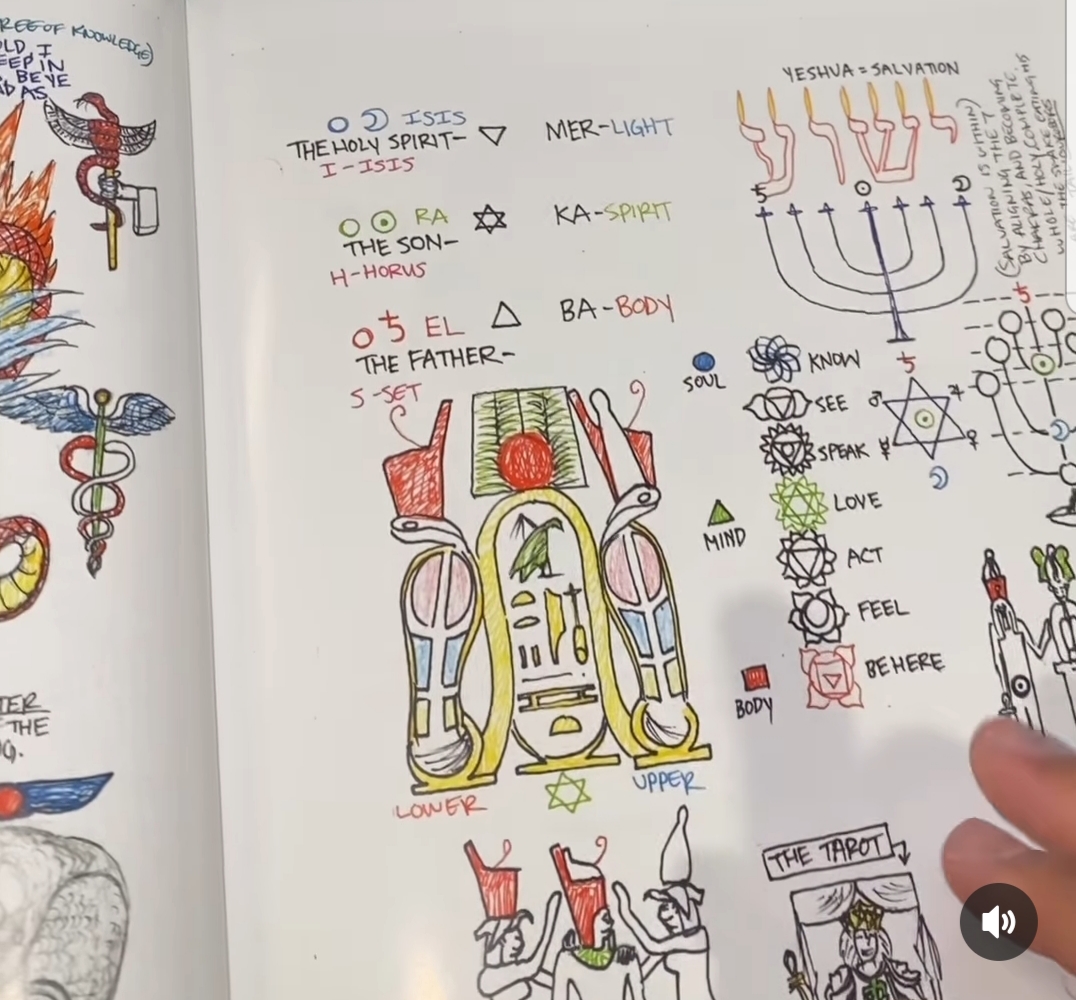 REE OF KNOWLEDGE)
OLD, I
EEP IN
BE YE
AS
ISIS
THE HOLY SPIRIT- ▽ MER-LIGHT
I-ISIS
RA
KA-SPIRIT
THE SON-
H-HORUS
EL
BA-BODY
THE FATHER-
S-SET
LOWER
UPPER
YESHUA = SALVATION
(SALVATION IS WITHIN)
BY ALIGNING THE 7
CHAKRAS, AND BECOMING
WHOLE/HOLY, COMPLETE.
SOUL
KNOW
SEE
SPEAK
MIND
LOVE
ACT
FEEL
BODY
BE HERE
THE TAROT
TER
THE
G.